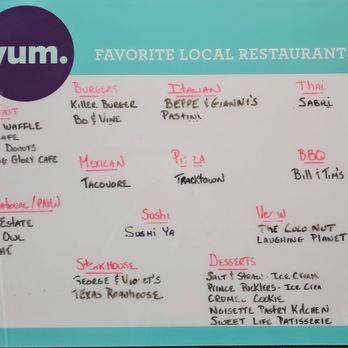 yum.
FAVORITE LOCAL RESTAURANT
BURGERS
KILLER BURGER
BO & VINE
ITALIAN
BEPPE & GIANNI'S
PASTINI
THAI
SABAI
WAFFLE
DONUTS
GLORY CAFE
MEXICAN
TACOVORE
TRACKTOWN
BBQ
BILL & TIM'S
/PNW
ESTATE
OWL
SUSHI
SUSHI YA
THE COCONUT
LAUGHING PLANET
STEAKHOUSE
GEORGE & VIOLET'S
TEXAS ROADHOUSE
DESSERTS
SALT & STRAW - ICE CREAM
PRINCE PUCKLERS - ICE CREA
CRUMBL COOKIE
NOISETTE PASTRY KITCHEN
SWEET LIFE PATISSERIE